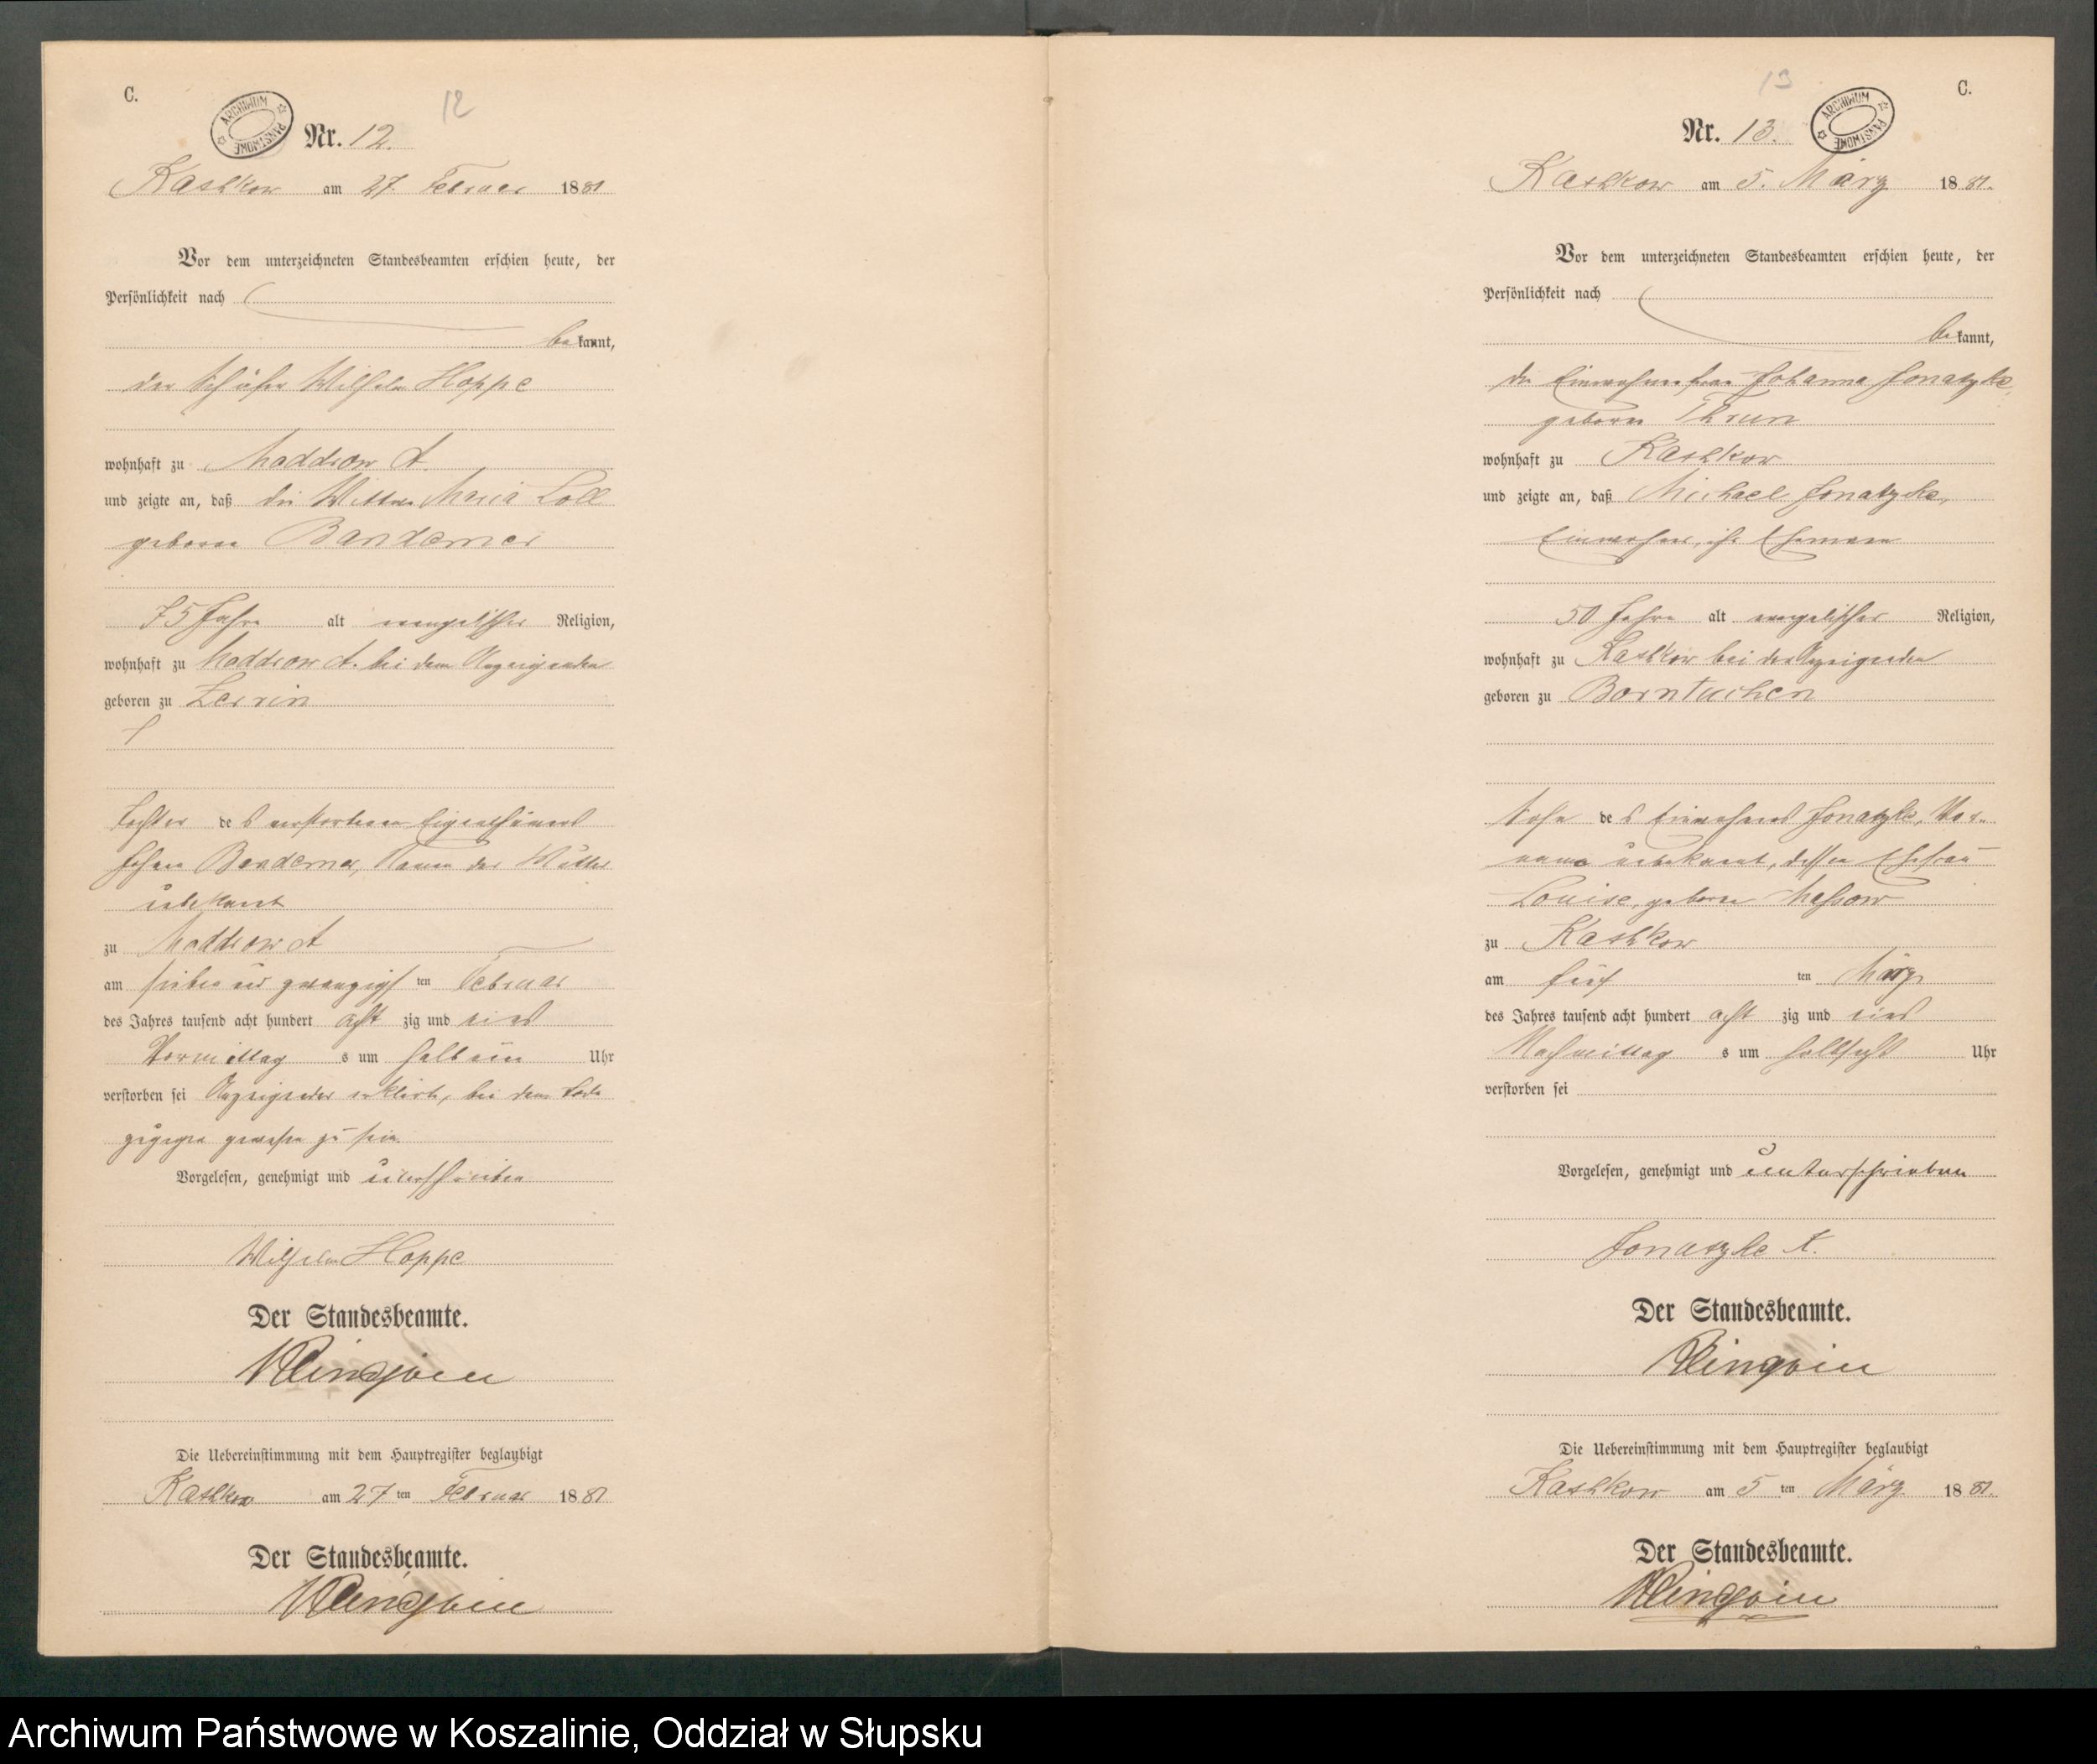 C.
12
ARCHIWUM PAŃSTWOWE
Nr. 12.
Kathkow am 27. Februar 1881
Vor dem unterzeichneten Standesbeamten erschien heute, der
Persönlichkeit nach
bekannt,
der Schäfer Wilhelm Hoppe
wohnhaft zu Moddrow A.
und zeigte an, daß die Wittwe Maria Loll
geborne Bandemer
75 Jahre alt evangelischer Religion,
wohnhaft zu Moddrow A. bei dem Anzeigenden
geboren zu Zerrin
Tochter des verstorbenen Eigenthümers
Johann Bandemer, Namen der Mutter
unbekannt
zu Moddrow A
am sieben und zwanzigsten Februar
des Jahres tausend acht hundert achtzig und eins
Vormittags um halb ein Uhr
verstorben sei Anzeigender erklärte, bei dem Tode
zugegen gewesen zu sein.
Vorgelesen, genehmigt und unterschrieben
Wilhelm Hoppe
Der Standesbeamte.
Die Uebereinstimmung mit dem Hauptregister beglaubigt
Kathkow am 27ten Februar 1881
Der Standesbeamte.
13
C.
Nr. 13.
ARCHIWUM PAŃSTWOWE
Kathkow am 5. März 1881.
Vor dem unterzeichneten Standesbeamten erschien heute, der
Persönlichkeit nach
bekannt,
die Einwohnerfrau Johanna Jonatzke,
geborne Thrun
wohnhaft zu Kathkow
und zeigte an, daß Michael Jonatzke,
Einwohner, ihr Ehemann
50 Jahre alt evangelischer Religion,
wohnhaft zu Kathkow bei der Anzeigenden
geboren zu Borntuchen
Sohn des Einwohners Jonatzke, Vor-
name unbekannt, dessen Ehefrau
Louise, geborne Massow
zu Kathkow
am fünften März
des Jahres tausend acht hundert achtzig und eins
Nachmittags um halb Uhr
verstorben sei
Vorgelesen, genehmigt und unterschrieben
Jonatzke
Der Standesbeamte.
Die Uebereinstimmung mit dem Hauptregister beglaubigt
Kathkow am 5ten März 1881.
Der Standesbeamte.
Archiwum Państwowe w Koszalinie, Oddział w Słupsku